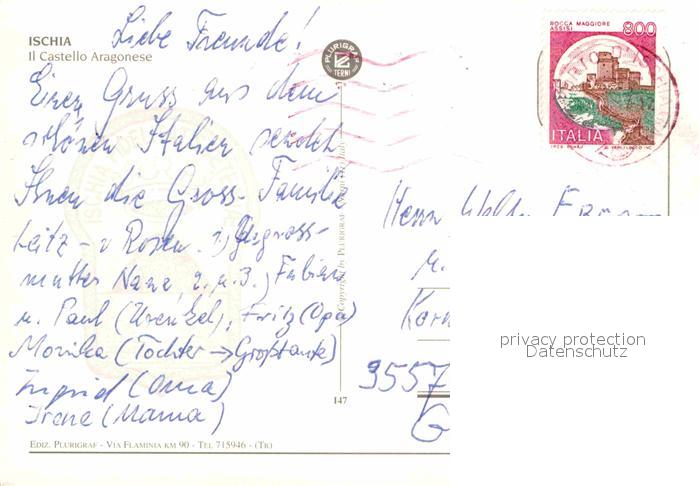 ISCHIA
Il Castello Aragonese
Liebe Freunde!
Einen Gruss aus dem
schönen Italien sendet
Ihnen die Gross-Familie
Leitz - v Rosen. 1.)
mutter Nana, 2. u. 3.) Fabian
u. Paul (Urenkel), Fritz (Opa)
Monika (Tochter → Großtante)
Ingrid (Oma)
Irene (Mama)
EDIZ. PLURIGRAF - VIA FLAMINIA KM 90 - TEL 715946 - (TR)
PLURIGRAF
TERNI
Copyright by PLURIGRAF
147
ROCCA MAGGIORE
ASSISI
800
ITALIA
Herrn
u.
3557
G
privacy protection
Datenschutz